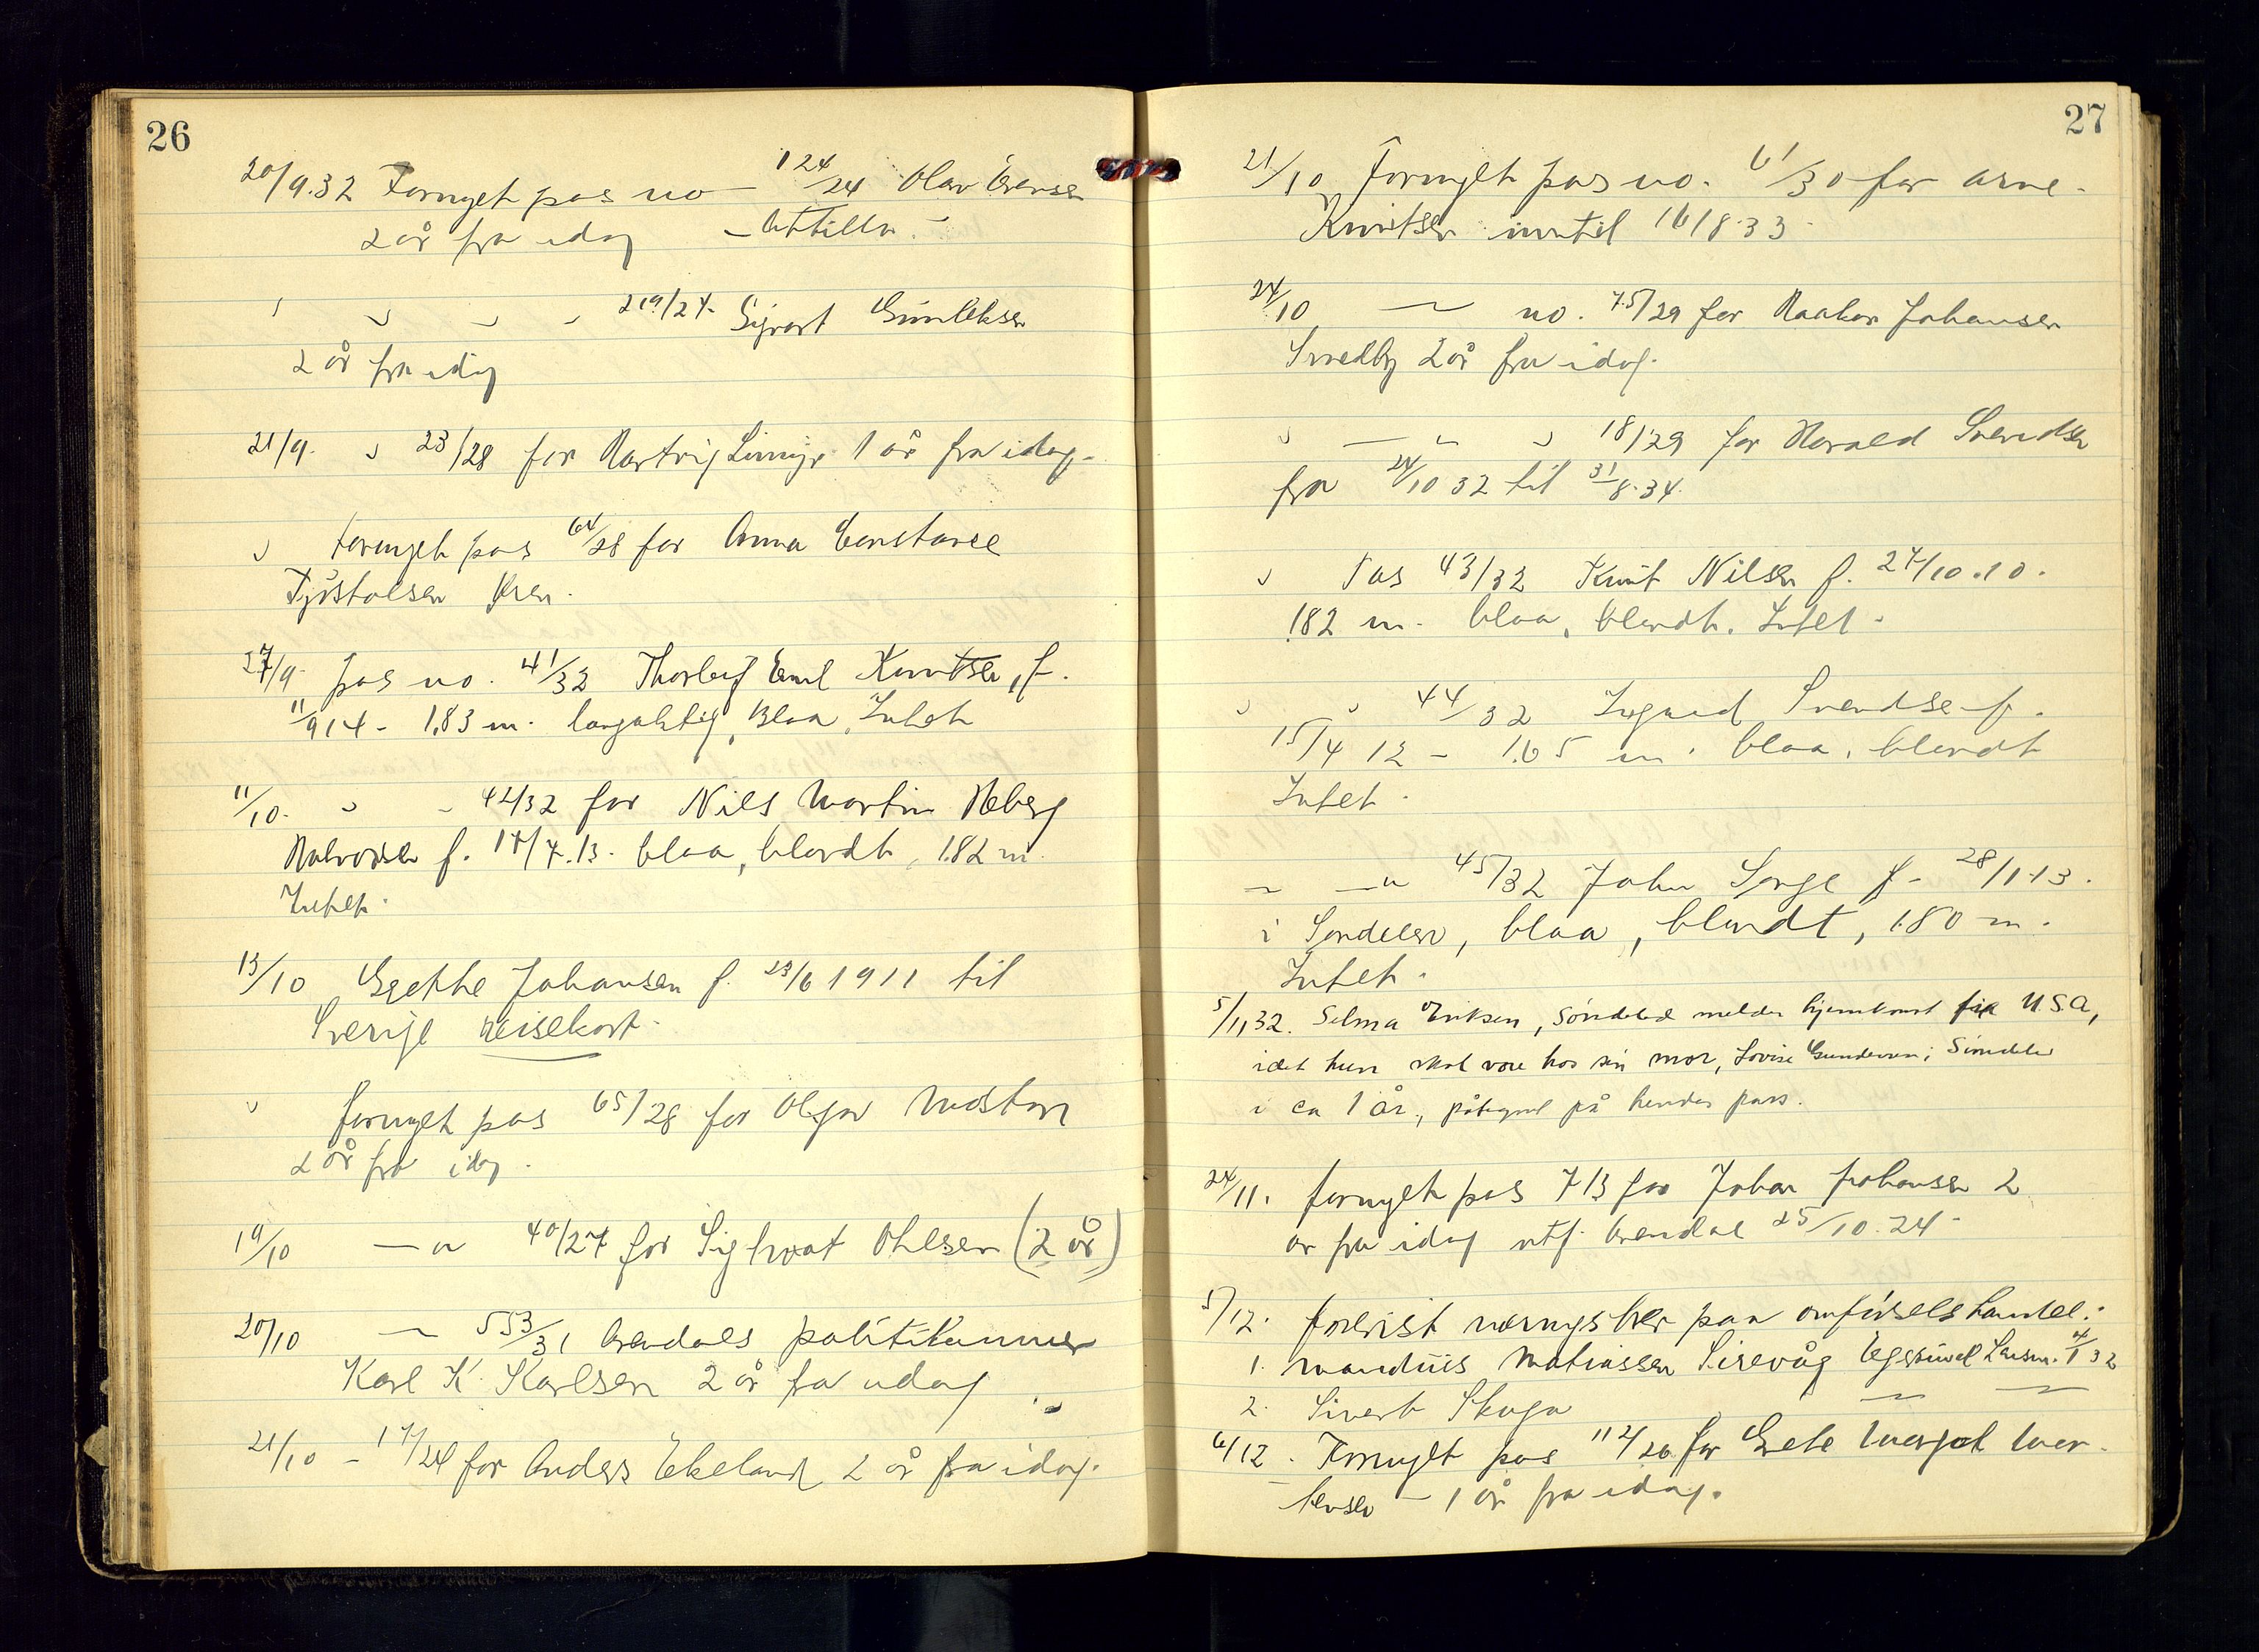 26
20/9.32 Fornyet pas no 124/24 Olav Evensen
2 år fra idag –
" " " " 219/24. Sigvart Gunleksen
2 år fra idag
21/9. " 23/28 for Hartvig 1 år fra idag.
" Fornyet pas 64/28 for Anna Constance
Tjøstolsen
27/9. pas no. 41/32 Thorleif Emil Knutsen, f.
11/9 14 - 1,83 m. langaktig, Blaa, Intet
11/10. " - 42/32 for Nils Martin Heberg
Halvorsen f. 17/7.13. blaa, blondt, 1.82 m.
Intet.
13/10 Grethe Johansen f. 23/6 1911 til
Sverige reisekort.
" fornyet pas 65/28 for Olga
2 år fra idag.
19/10 — " 40/27 for Sighvat Ohlsen (2 år)
20/10 — 553/31 Arendals politikammer
Karl K. Karlsen 2 år fra idag
21/10 - 17/24 for Anders Ekeland 2 år fra idag.
27
21/10 Fornyet pas no. 61/30 for Arne
Knutsen inntil 16/8.33.
24/10 — no. 75/29 for Haakon Johansen
Smedby 2 år fra idag.
" — " " 18/29 for Harald Svendsen
fra 24/10 32 til 31/8.34.
" Pas 43/32 Knut Nilsen f. 27/10.10.
1.82 m. blaa, blondt. Intet.
" " 44/32 Ingrid Svendsen f.
15/4 12 - 1.65 m. blaa, blondt
Intet.
" — " 45/32 John Songe f. 28/1-13.
i Søndeled, blaa, blondt, 1.80 m.
Intet.
5/11 32. Selma Eriksen, Søndeled melder hjemkomst fra U.S.A,
idet hun skal være hos sin mor, Lovise Gundersen i Søndeled
i ca 1 år, påtegnet på hendes pass.
24/11. fornyet pas 713 for Johan Johansen 2
år fra idag utf. Arendal 25/10.24.
5/12. forevist næringsbrev paa omførselshandel:
1. Mandius Matiassen Sirevåg Egersund Lensm. 4/1 32
2. Sivert Skaga — —
6/12. Fornyet pas 112/26 for Grete
1 år fra idag.